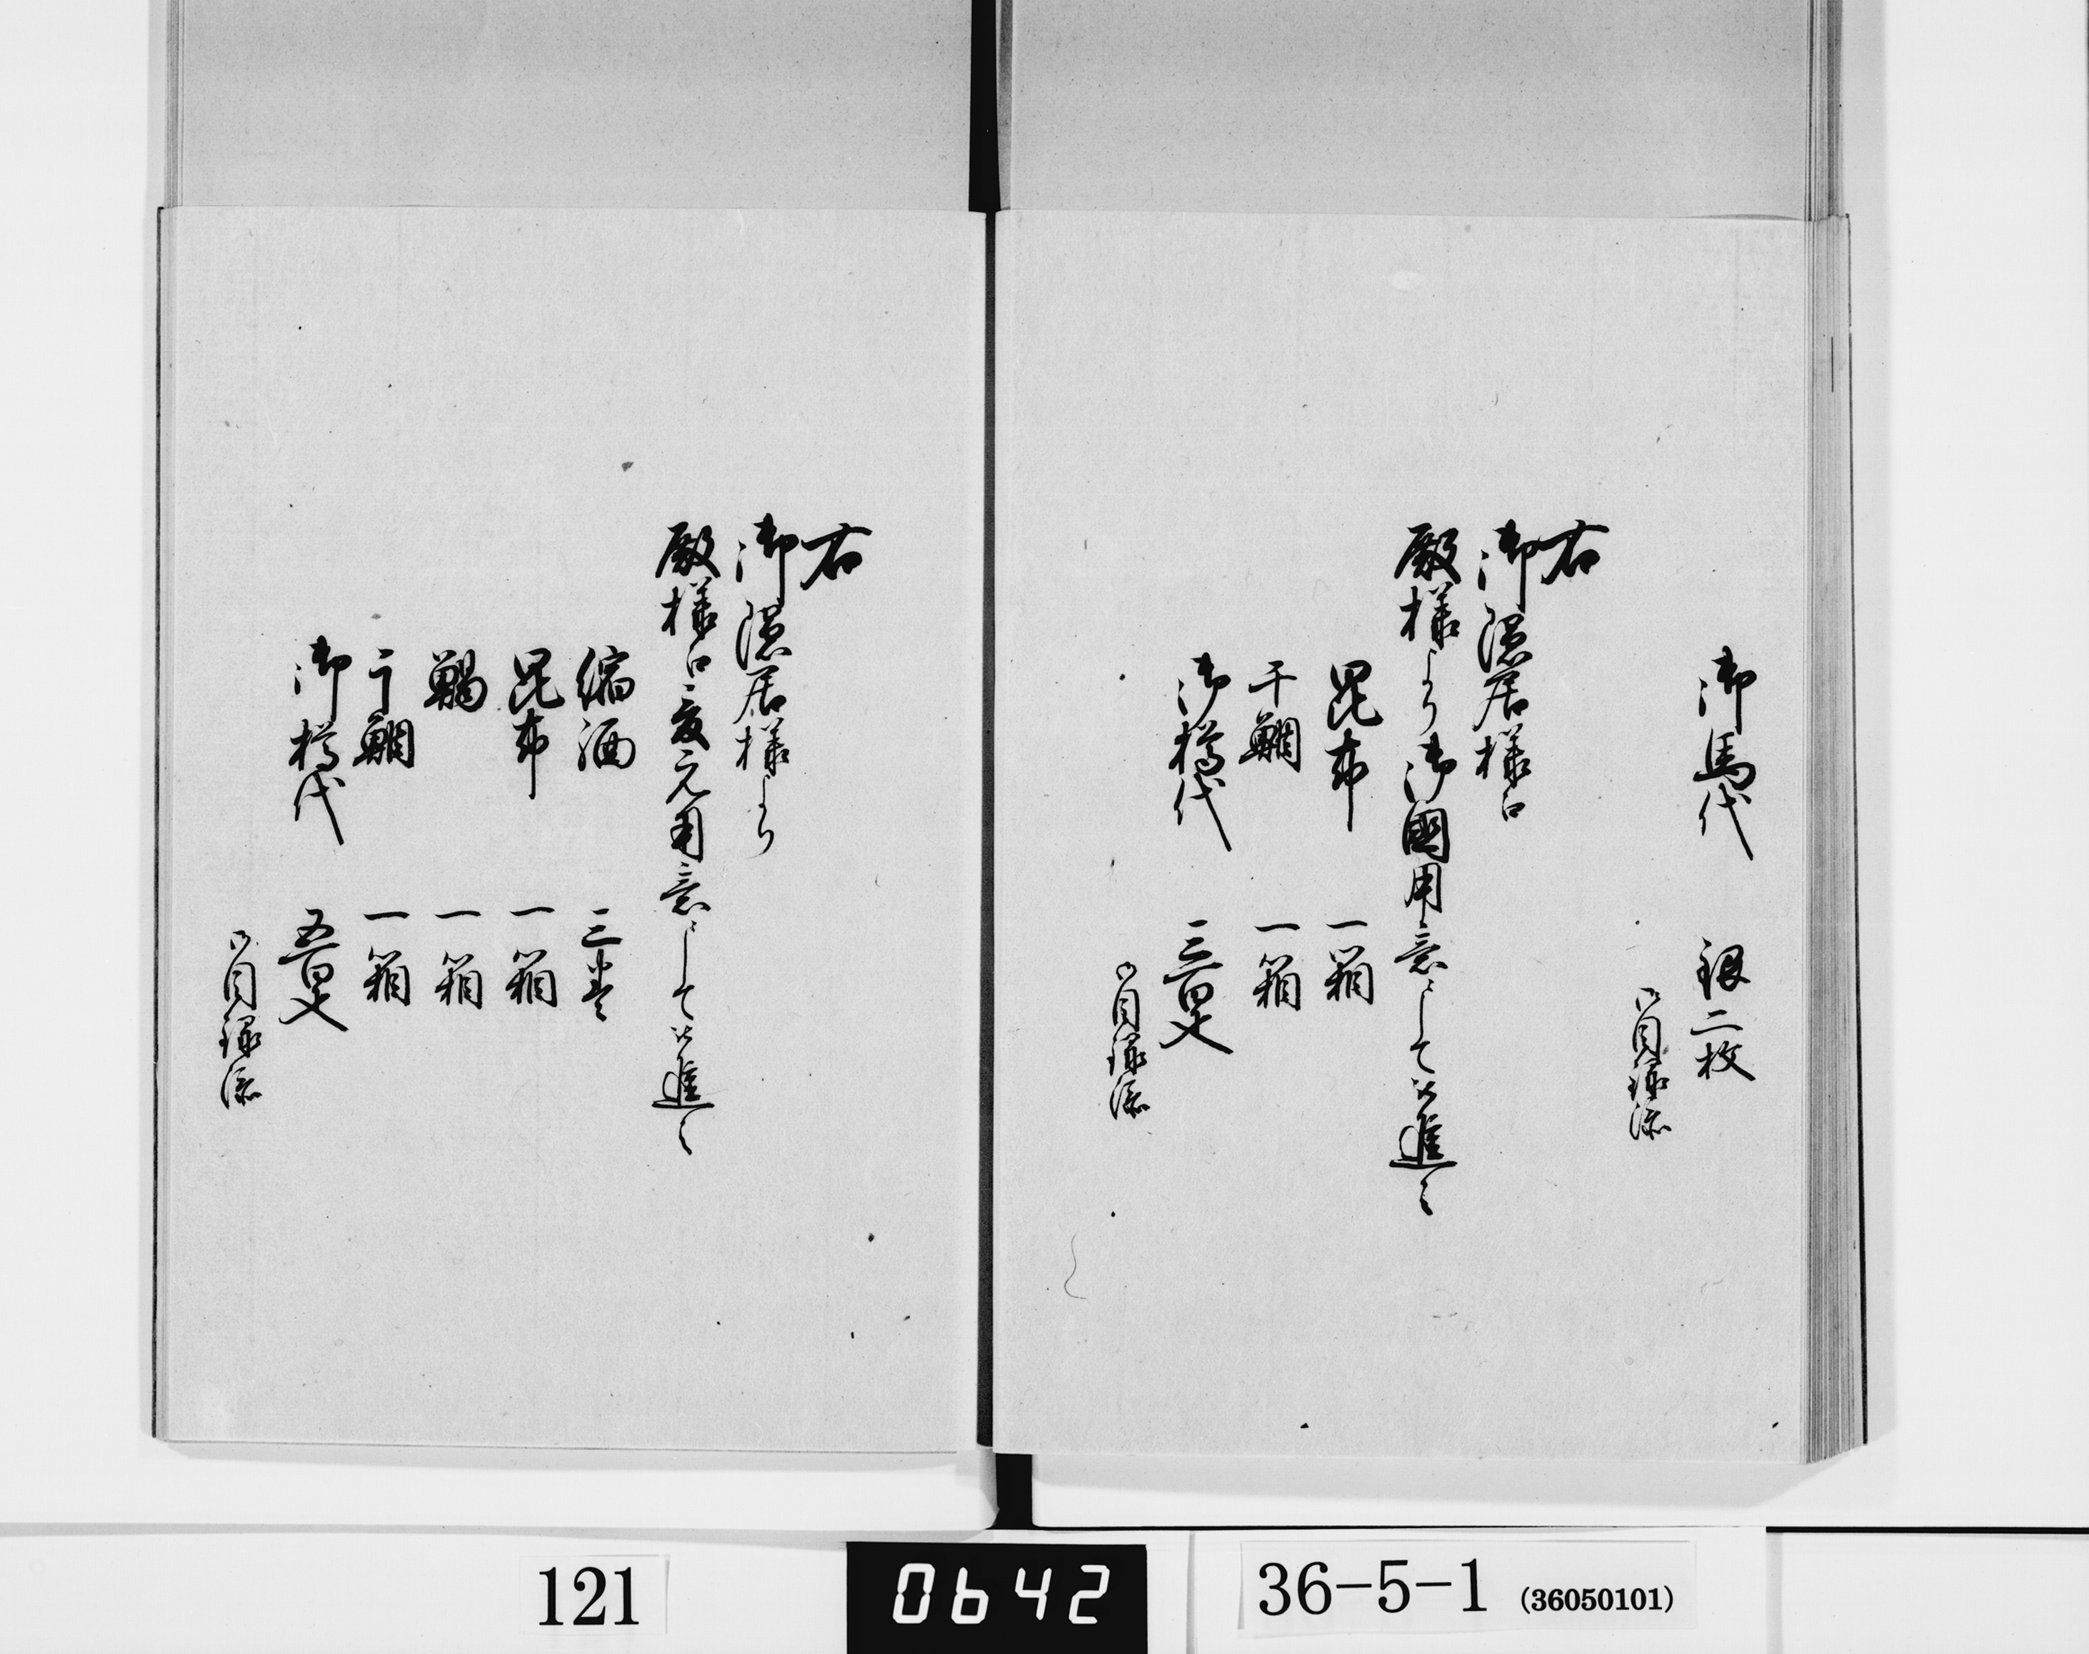 御馬代 銀二枚
御目録添
右
御隠居様江
殿様より御國用意ニして被進之
昆布 一箱
干鯛 一箱
御樽代 三百疋
御目録添
右
御隠居様より
殿様江爰元用意ニして被進之
縮 三巻
昆布 一箱
鯣 一箱
干鯛 一箱
御樽代 五百疋
御目録添
121
0642
36-5-1 (36050101)